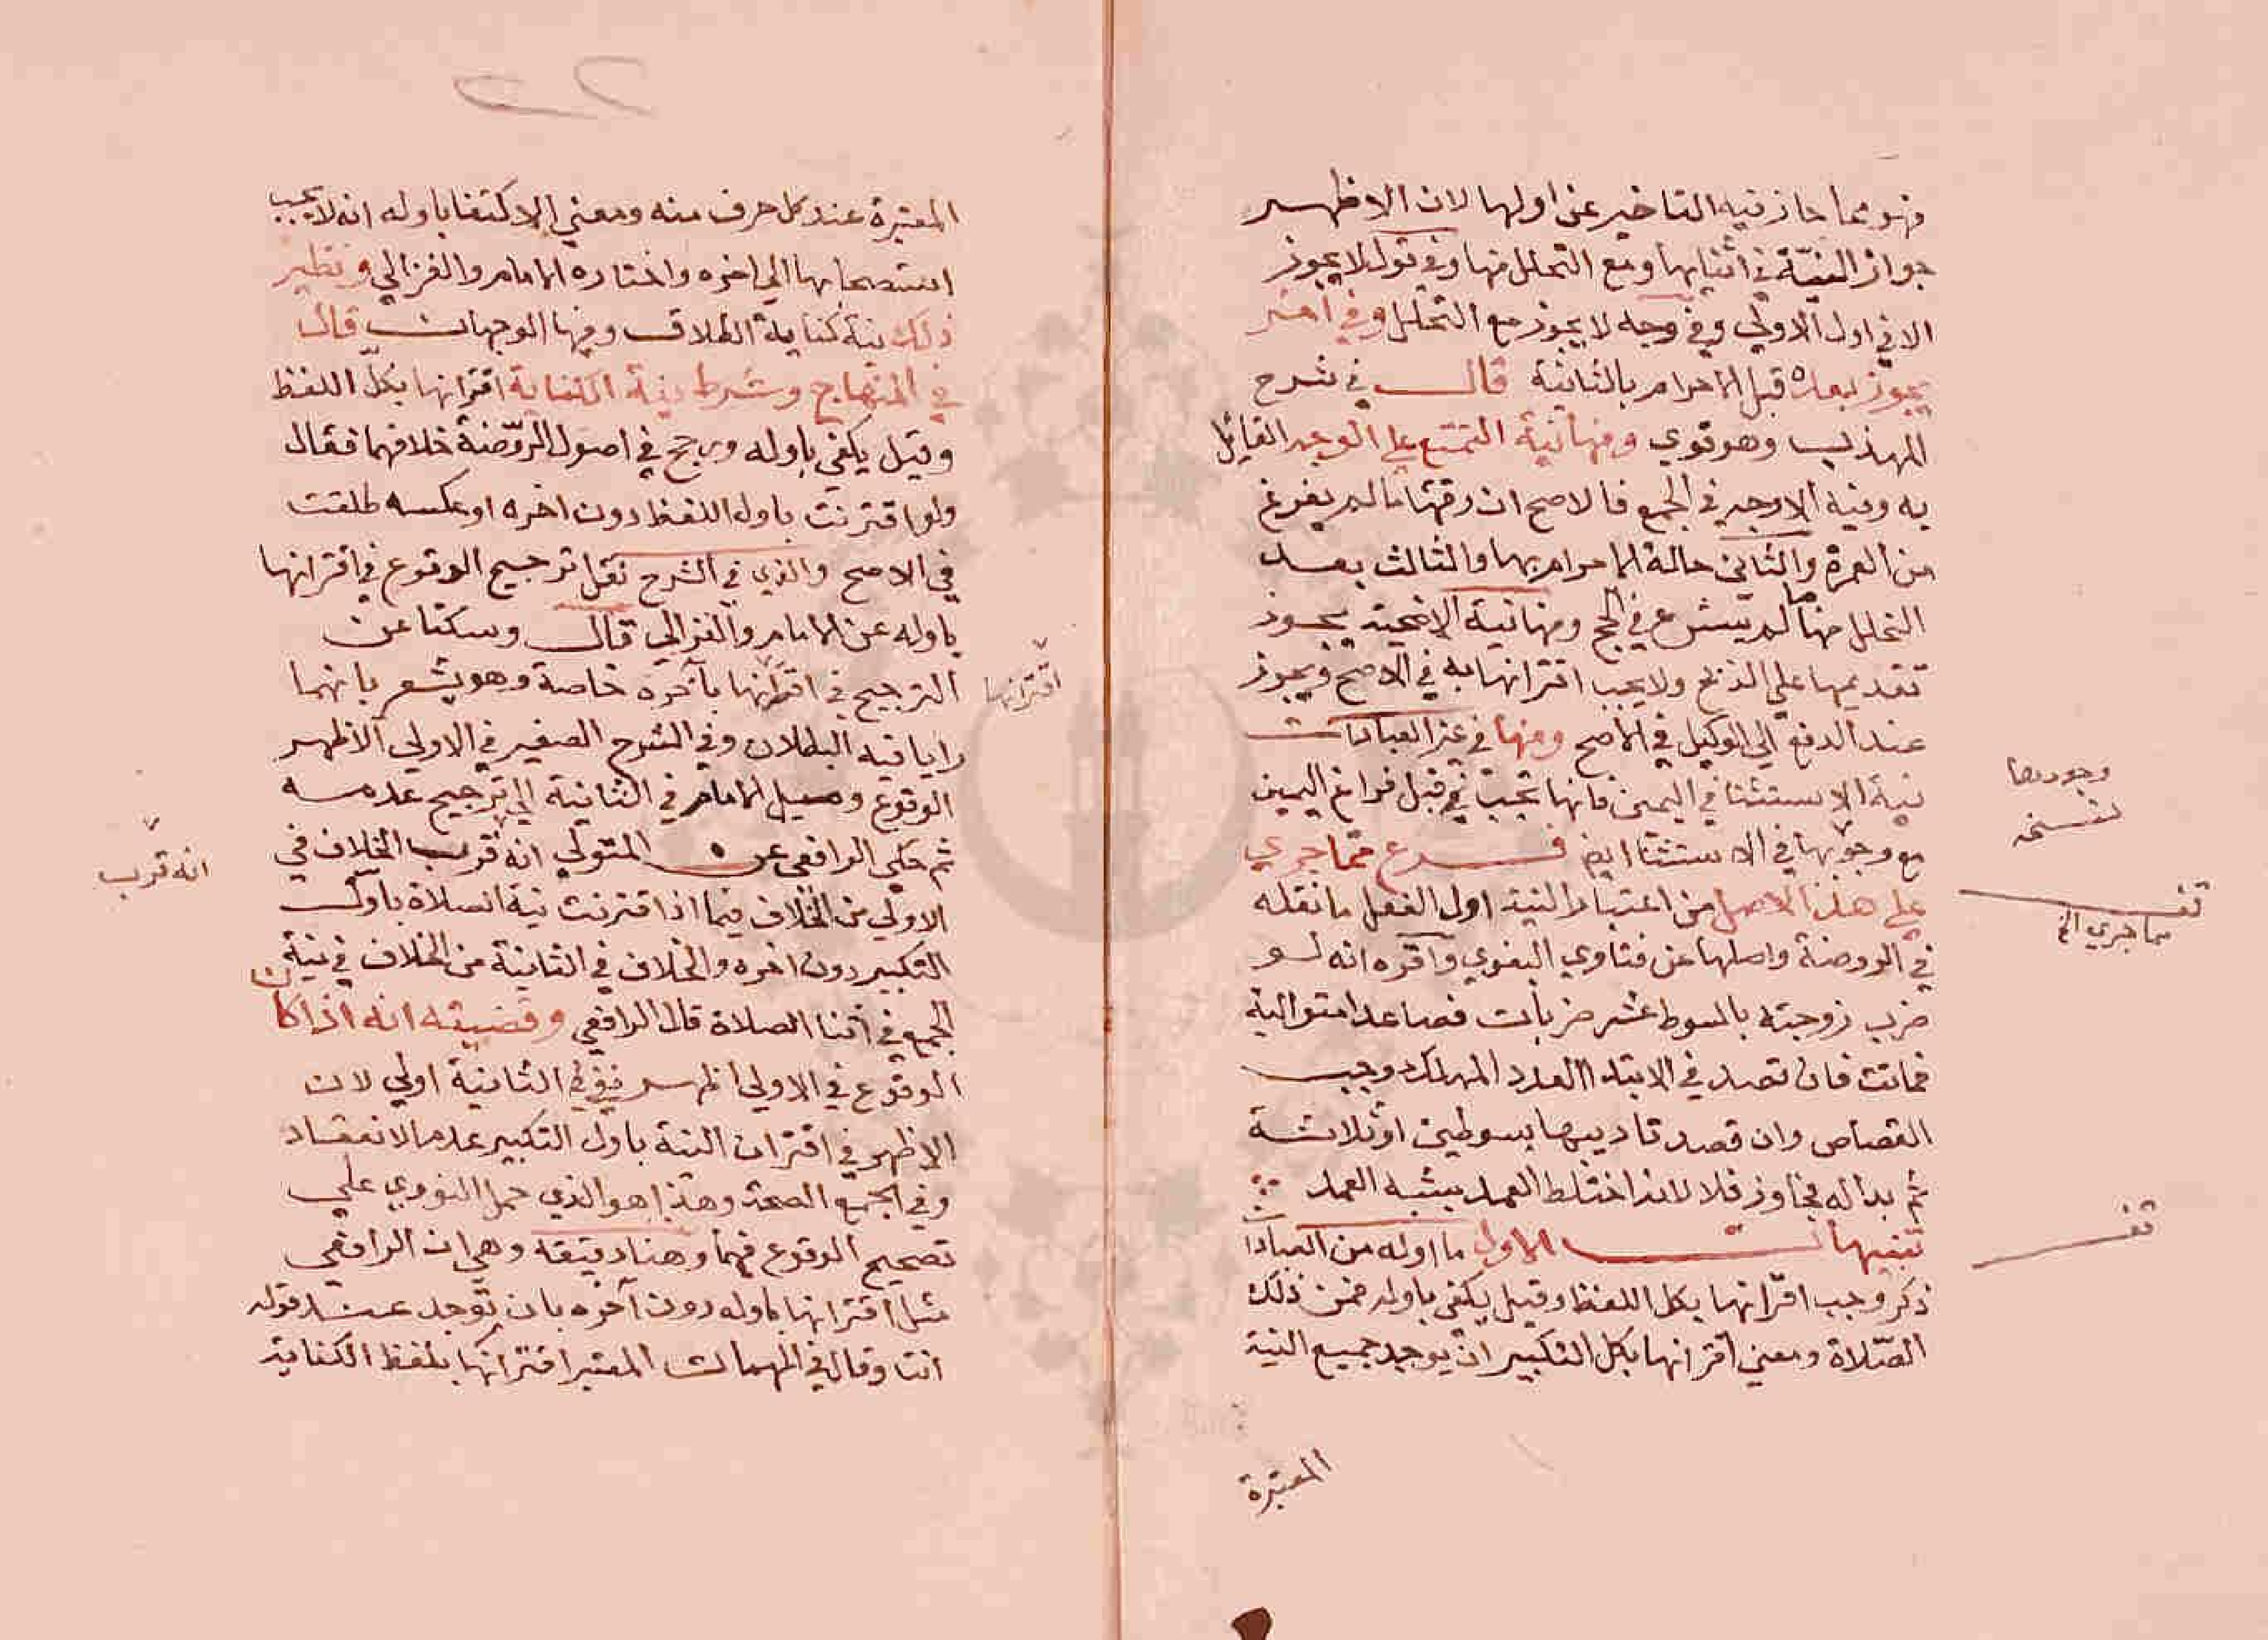 فهو مما جاز فيه التاخير عن اولها لان الاظهر
جواز النية في اثنايها ومع التحلل منها وفي قول لا يجوز
الا في اول الاولي وفي وجه لا يجوز مع التحلل وفي اخر
يجوز بعده قبل الاحرام بالثانية قال في شرح
المهذب وهو قوي ومنها نية التمتع علي الوجه القايل
به وفيه الاوجه في الجمع فالاصح ان وقتها ما لم يفرغ
من العمرة والثاني حالة الاحرام بها والثالث بعد
التحلل منها ما لم يشرع في الحج ومنها نية الاضحية يجوز
تقديمها علي الذبح ولا يجب اقترانها به في الاصح ويجوز
عند الدفع الي الوكيل في الاصح ومنها في غير العبادات
نية الاستثنا في اليمين فانها تجب في قبل فراغ اليمين
مع وجوبها في الاستثنا ايضا فرع مما جري
علي هذا الاصل من اعتبار النية اول الفعل ما نقله
في الروضة واصلها عن فتاوي البغوي واقره انه لو
ضرب زوجته بالسوط عشر ضربات فصاعدا متوالية
فماتت فان قصد في الابتدا العدد المهلك وجب
القصاص وان قصد تاديبها بسوطين او ثلاثة
ثم بدا له فجاوز فلا لانه اختلط العمد بشبه العمد
تنبيهات الاول ما اوله من العبادات
ذكر وجب اقترانها بكل اللفظ وقيل يكفي باوله فمن ذلك
الصلاة ومعني اقترانها بكل التكبير ان يوجد جميع النية
المعتبرة
وجودها
نسخه
مما جري الخ
المعتبرة عند كل حرف منه ومعني الاكتفا باوله انه لا يجب
استصحابها الي اخره واختاره الامام والغزالي ونظير
ذلك نية كناية الطلاق وفيها الوجهان قال
في المنهاج وشرط نية الكناية اقترانها بكل اللفظ
وقيل يكفي باوله ورجح في اصول الروضة خلافهما فقال
ولو اقترنت باول اللفظ دون اخره او عكسه طلقت
في الاصح والذي في الشرح نقل ترجيح الوقوع في اقترانها
باوله عن الامام والغزالي قال وسكتا عن
الترجيح في اقترانها بآخره خاصة وهو يشعر بانهما
رايا فيه البطلان وفي الشرح الصغير في الاولي الاظهر
الوقوع وميل الامام في الثانية الي ترجيح عدمه
ثم حكي الرافعي عن المتولي انه قرب الخلاف في
الاولي من الخلاف فيما اذا اقترنت نية الصلاة باول
التكبير دون اخره والخلاف في الثانية من الخلاف في نية
الجمع في اثنا الصلاة قال الرافعي وقضيته انه اذا كان
الوقوع في الاولي اظهر ففي الثانية اولي لان
الاظهر في اقتران النية باول التكبير عدم الانعقاد
وفي الجمع الصحة وهذا هو الذي حمل النووي علي
تصحيح الوقوع فيهما وهنا دقيقة وهي ان الرافعي
مثل اقترانها باوله دون آخره بان توجد عند قوله
انت وقال في المهمات المعتبر اقترانها بلفظ الكناية
اقترانها
انه قرب